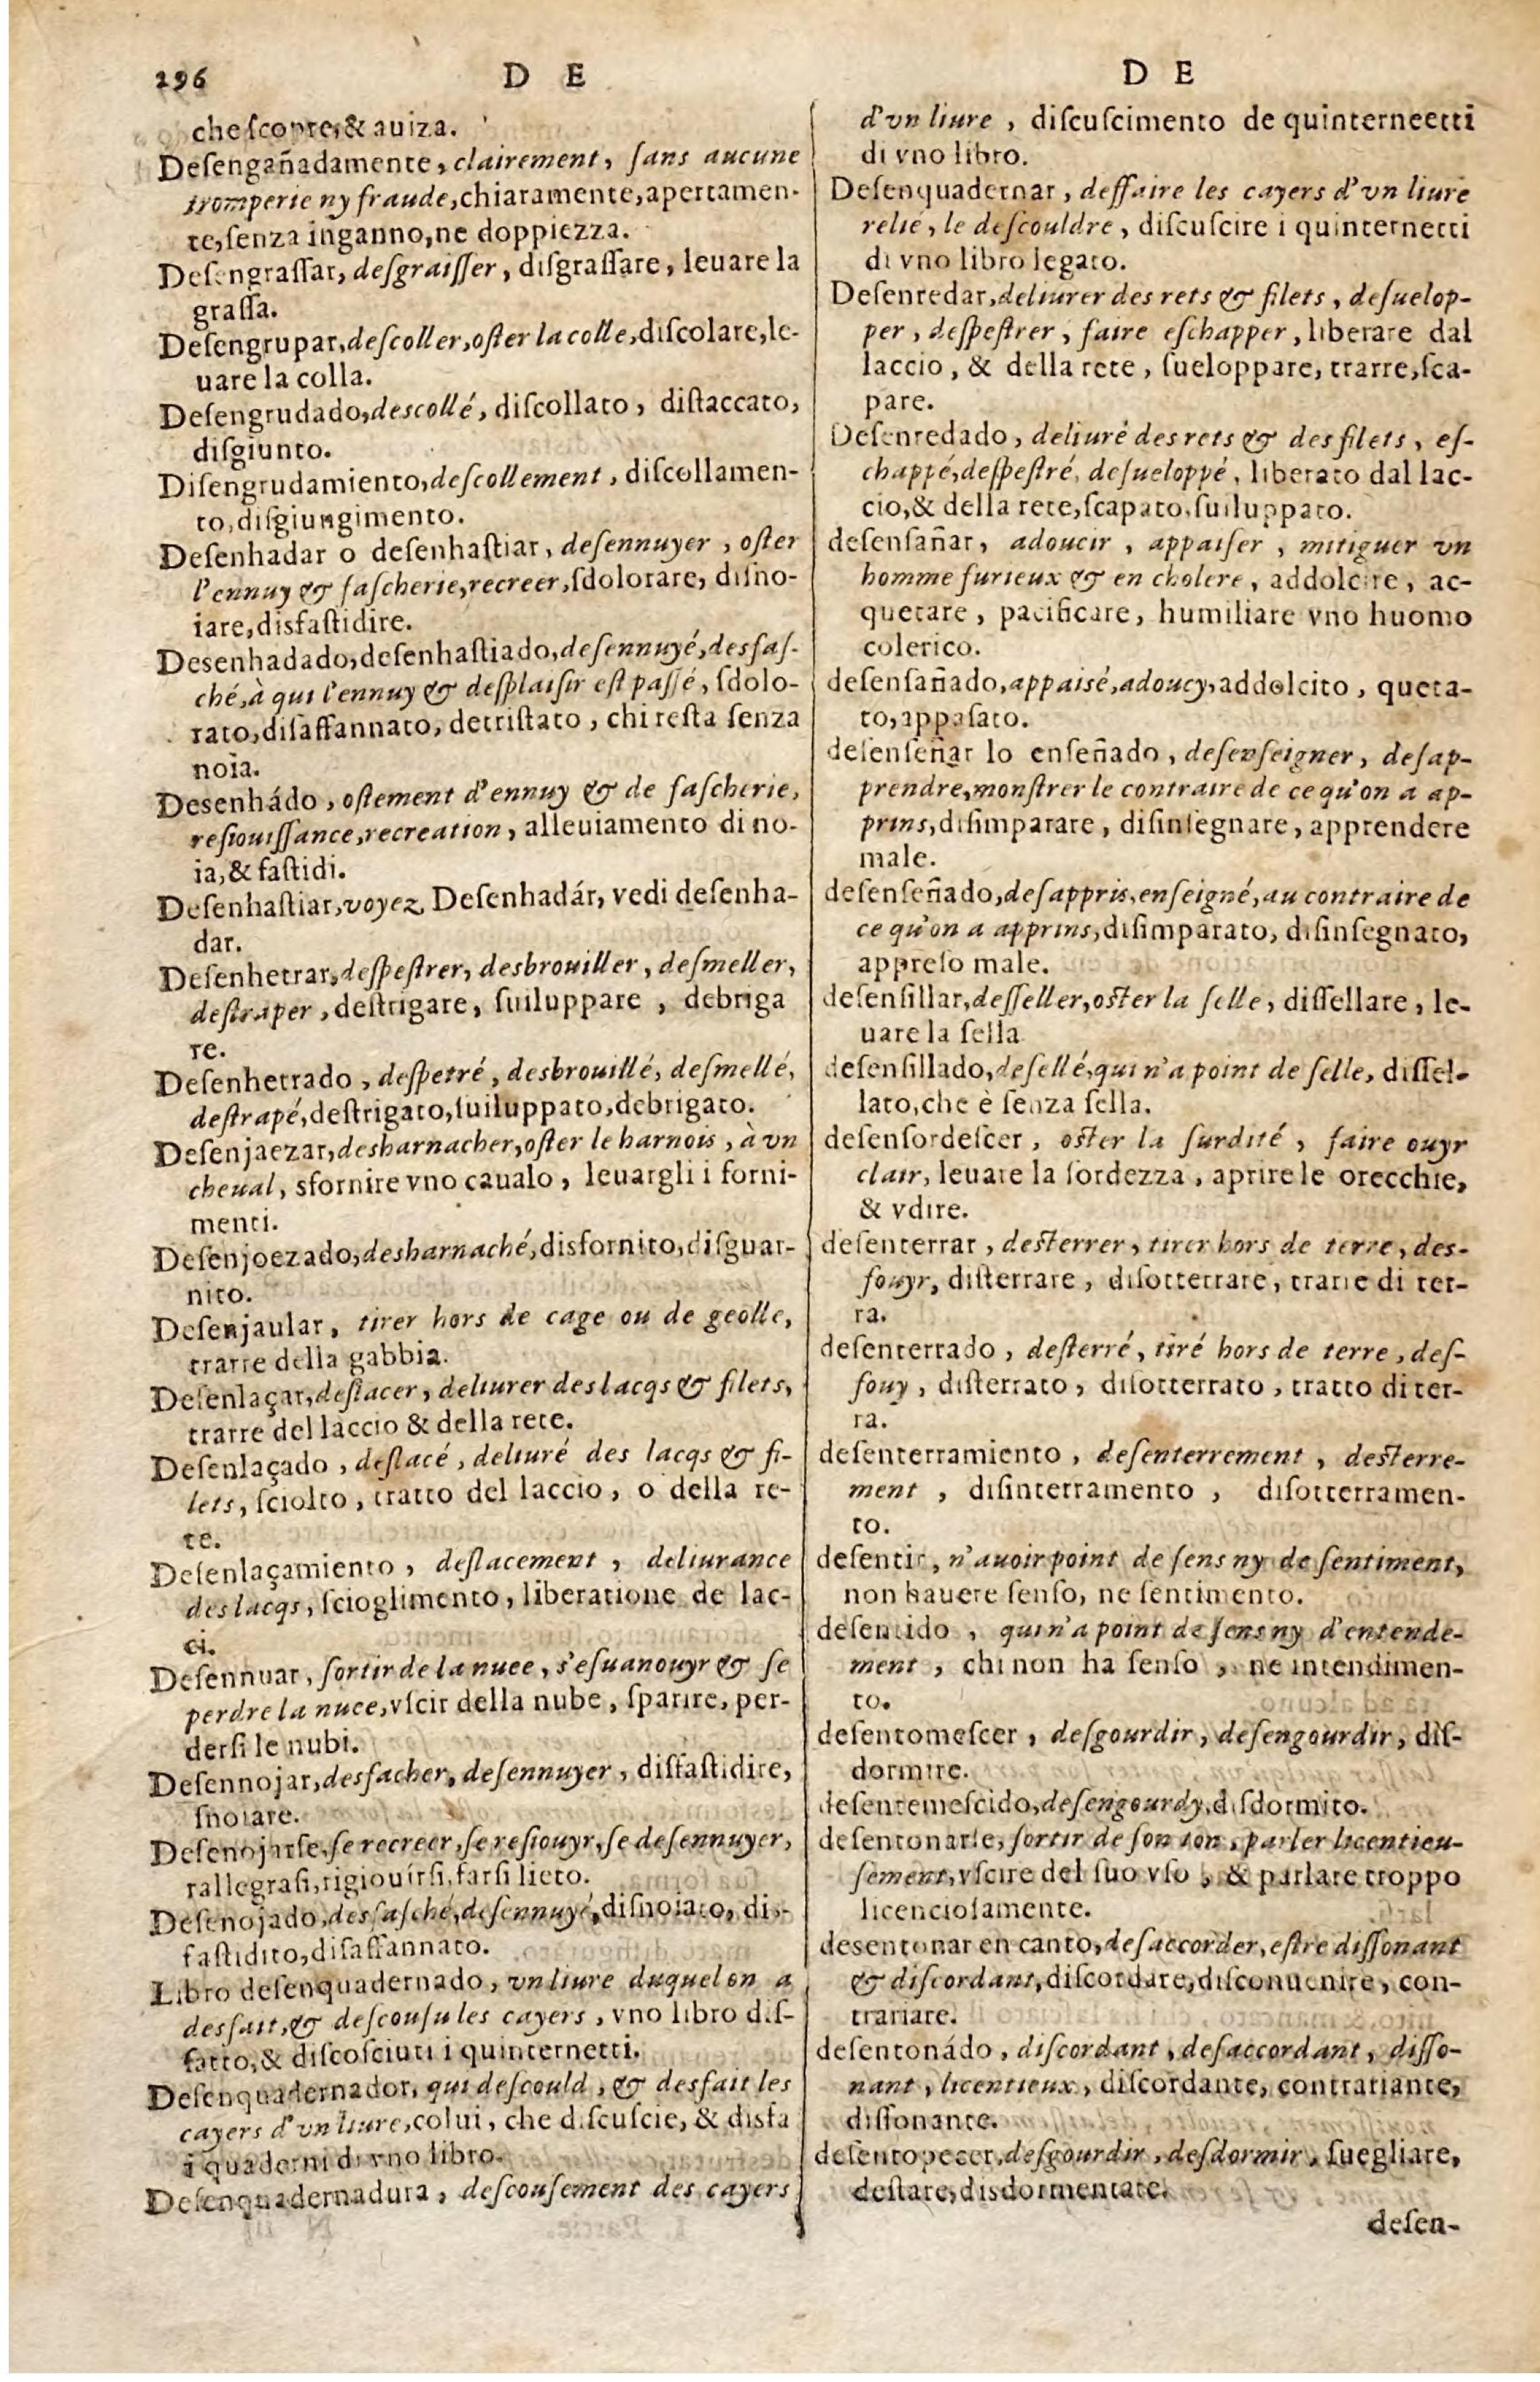 296 D E
che scopre, & auiza.
Deſengañadamente, clairement, ſans aucune
tromperie ny fraude, chiaramente, apertamen-
te, ſenza inganno, ne doppiezza.
Deſengraſſar, deſgraiſſer, diſgraſſare, leuare la
graſſa.
Deſengrupar, deſcoller, oſter la colle, diſcolare, le-
uare la colla.
Deſengrudado, deſcollé, diſcollato, diſtaccato,
diſgiunto.
Diſengrudamiento, deſcollement, diſcollamen-
to, diſgiungimento.
Deſenhadar o deſenhaſtiar, deſennuyer, oſter
l'ennuy & faſcherie, recreer, ſdolorare, diſno-
iare, disfaſtidire.
Desenhadado, deſenhaſtiado, deſennuyé, desfaſ-
ché, à qui l'ennuy & deſplaiſir eſt paſſé, ſdolo-
rato, diſaffannato, detriſtato, chi reſta ſenza
noia.
Desenhádo, oſtement d'ennuy & de faſcherie,
reſiouiſſance, recreation, alleuiamento di no-
ia, & faſtidi.
Deſenhaſtiar, voyez Deſenhadár, vedi deſenha-
dar.
Deſenhetrar, deſpeſtrer, desbrouiller, deſmeller,
deſtraper, deſtrigare, ſuiluppare, debriga
re.
Deſenhetrado, deſpetré, desbrouillé, deſmellé,
deſtrapé, deſtrigato, ſuiluppato, debrigato.
Deſenjaezar, desharnacher, oſter le harnois, à vn
cheual, sfornire vno caualo, leuargli i forni-
menti.
Deſenjoezado, desharnaché, disfornito, diſguar-
nito.
Deſenjaular, tirer hors de cage ou de geolle,
trarre della gabbia.
Deſenlaçar, deſlacer, deliurer des lacqs & filets,
trarre del laccio & della rete.
Deſenlaçado, deſlacé, deliuré des lacqs & fi-
lets, ſciolto, tratto del laccio, o della re-
te.
Deſenlaçamiento, deſlacement, deliurance
des lacqs, ſcioglimento, liberatione de lac-
ci.
Deſennuar, ſortir de la nuee, s'eſuanouyr & ſe
perdre la nuee, vſcir della nube, ſparire, per-
derſi le nubi.
Deſennojar, desfacher, deſennuyer, disfaſtidire,
ſnoiare.
Deſenojarſe, ſe recreer, ſe reſiouyr, ſe deſennuyer,
rallegraſi, rigiouirſi, farſi lieto.
Deſenojado, desfaſché, deſennuyé, diſnoiato, diſ-
faſtidito, diſaffannato.
Libro deſenquadernado, vn liure duquel on a
desfait, & deſcouſu les cayers, vno libro diſ-
fatto, & diſcoſciuti i quinternetti.
Deſenquadernador, qui deſcould, & desfait les
cayers d'vn liure, colui, che diſcuſcie, & disfa
i quaderni di vno libro.
Deſenquadernadura, deſcouſement des cayers
D E
d'vn liure, diſcuſcimento de quinterneetti
di vno libro.
Deſenquadernar, deffaire les cayers d'vn liure
relié, le deſcouldre, diſcuſcire i quinternetti
di vno libro legato.
Deſenredar, deliurer des rets & filets, deſuelop-
per, deſpeſtrer, faire eſchapper, liberare dal
laccio, & della rete, ſueloppare, trarre, ſca-
pare.
Deſenredado, deliuré des rets & des filets, eſ-
chappé, deſpeſtré, deſueloppé, liberato dal lac-
cio, & della rete, ſcapato, ſuiluppato.
deſenſañar, adoucir, appaiſer, mitiguer vn
homme furieux & en cholere, addolcire, ac-
quetare, pacificare, humiliare vno huomo
colerico.
deſenſañado, appaisé, adoucy, addolcito, queta-
to, appaſato.
deſenſeñar lo enſeñado, deſenſeigner, deſap-
prendre, monſtrer le contraire de ce qu'on a ap-
prins, diſimparare, diſinſegnare, apprendere
male.
deſenſeñado, deſappris, enſeigné, au contraire de
ce qu'on a apprins, diſimparato, diſinſegnato,
appreſo male.
deſenſillar, deſſeller, oſter la ſelle, diſſellare, le-
uare la ſella
deſenſillado, deſellé, qui n'a point de ſelle, diſſel-
lato, che è ſenza ſella.
deſenſordeſcer, oſter la ſurdité, faire ouyr
clair, leuare la ſordezza, aprire le orecchie,
& vdire.
deſenterrar, deſterrer, tirer hors de terre, des-
fouyr, diſterrare, diſotterrare, trarre di ter-
ra.
deſenterrado, deſterré, tiré hors de terre, deſ-
fouy, diſterrato, diſotterrato, tratto di ter-
ra.
deſenterramiento, deſenterrement, deſterre-
ment, diſinterramento, diſotterramen-
to.
deſentir, n'auoir point de ſens ny de ſentiment,
non hauere ſenſo, ne ſentimento.
deſentido, qui n'a point de ſens ny d'entende-
ment, chi non ha ſenſo, ne intendimen-
to.
deſentomeſcer, deſgourdir, deſengourdir, diſ-
dormire.
deſentemeſcido, deſengourdy, diſdormito.
deſentonarſe, ſortir de ſon ton, parler licentieu-
ſement, vſcire del ſuo vſo, & parlare troppo
licencioſamente.
desentonar en canto, deſaccorder, eſtre diſſonant
& diſcordant, diſcordare, diſconuenire, con-
trariare.
deſentonádo, diſcordant, deſaccordant, diſſo-
nant, licentieux, diſcordante, contrariante,
diſſonante.
deſentopecer, deſgourdir, deſdormir, ſuegliare,
deſtare, disdormentare.
deſen-